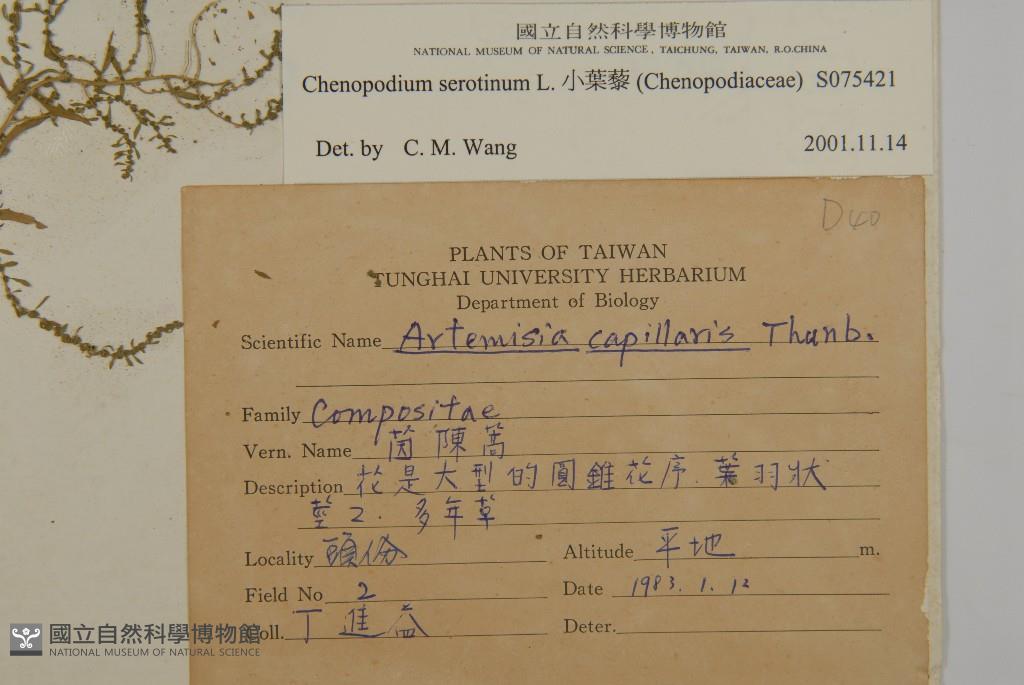 國立自然科學博物館
NATIONAL MUSEUM OF NATURAL SCIENCE, TAICHUNG, TAIWAN, R.O.CHINA
Chenopodium serotinum L. 小葉藜 (Chenopodiaceae) S075421
Det. by C. M. Wang 2001.11.14
D40
PLANTS OF TAIWAN
TUNGHAI UNIVERSITY HERBARIUM
Department of Biology
Scientific Name Artemisia capillaris Thunb.
Family Compositae
Vern. Name 茵陳蒿
Description 花是大型的圓錐花序.葉羽狀
2. 多年草
Locality 頭份 Altitude 平地 m.
Field No 2 Date 1983.1.12
Coll. 丁進益 Deter.
國立自然科學博物館
NATIONAL MUSEUM OF NATURAL SCIENCE